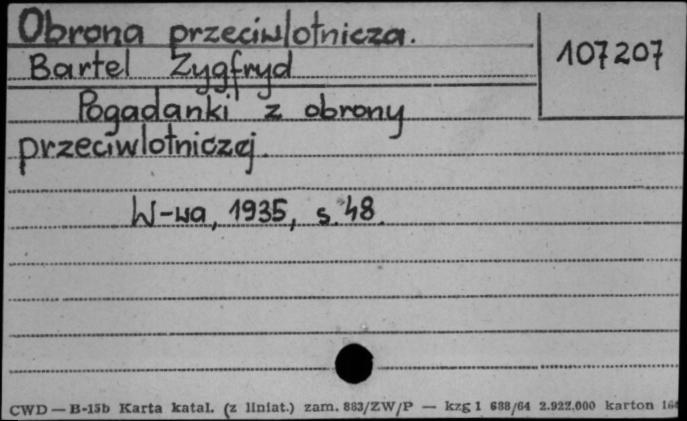 Obrona przeciwlotnicza.
107207
Bartel Zygfryd
Pogadanki z obrony
przeciwlotniczej.
W-wa, 1935, s. 48.
CWD — B-15b Karta katal. (z liniat.) zam. 883/ZW/P — kzg 1 688/64 2.922.000 karton